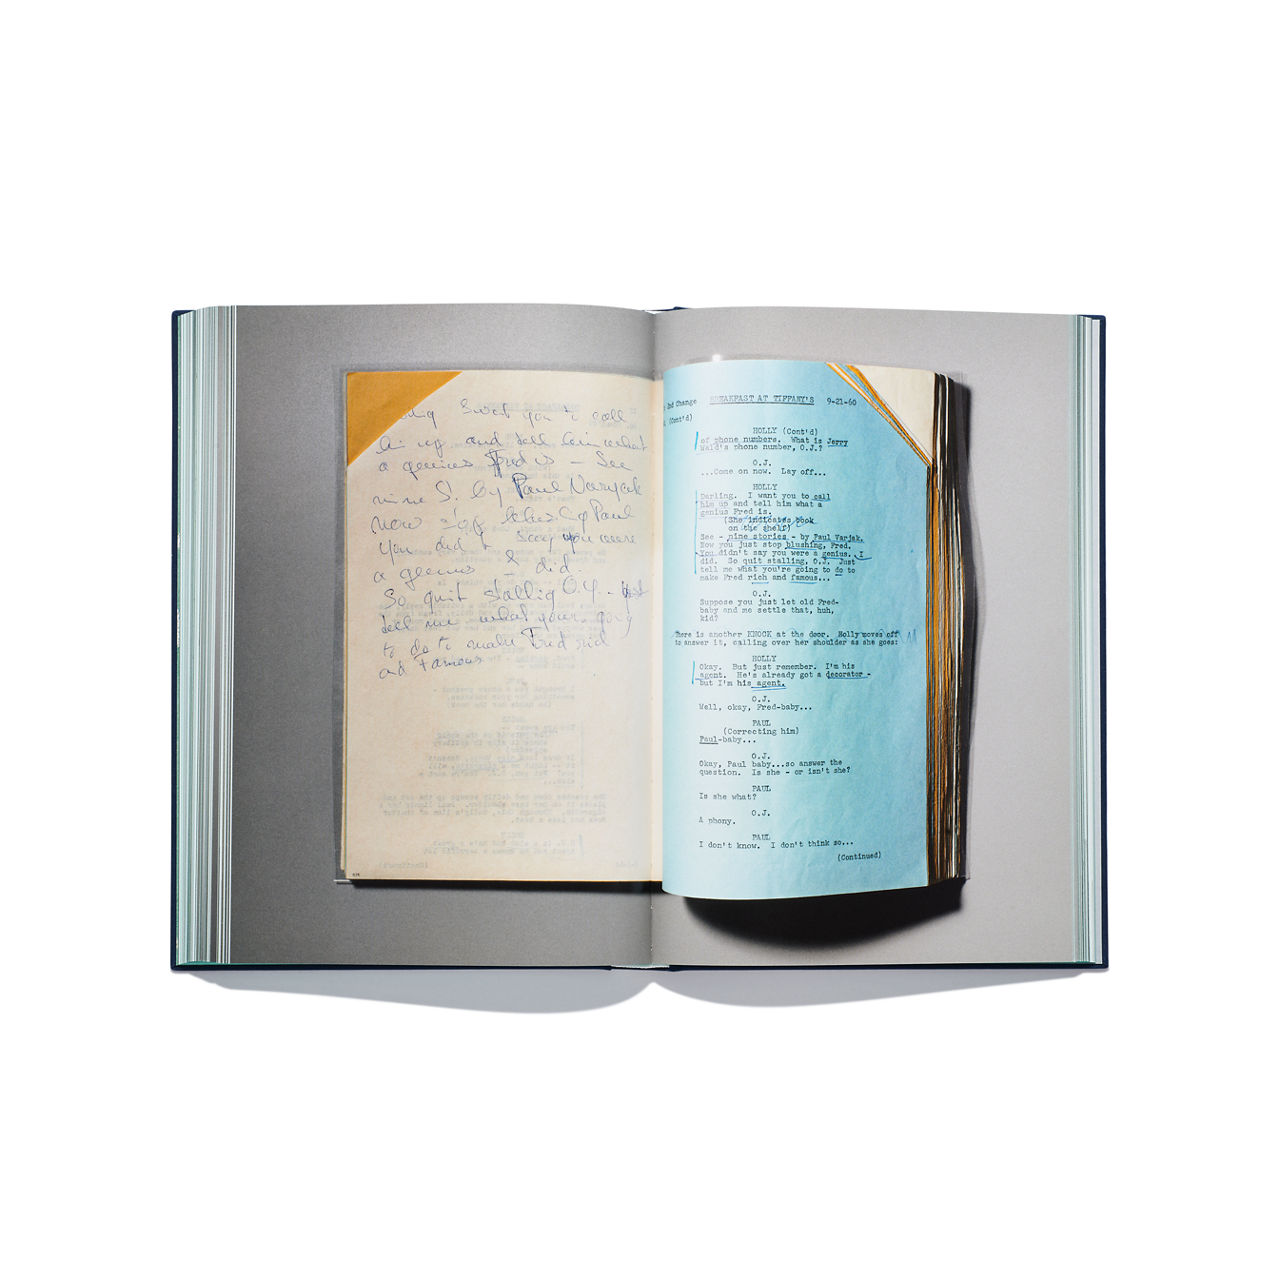 want you to call
him up and tell him what
a genius Fred is – See
nine S. by Paul Varjak
now stop blushing Paul
You didn't say you were
a genius I did.
So quit stalling O.J. – just
tell me what your going
to do to make Fred rich
and Famous
2nd Change BREAKFAST AT TIFFANY'S 9-21-60
(Cont'd)
HOLLY (Cont'd)
of phone numbers. What is Jerry
Wald's phone number, O.J.?
O.J.
...Come on now. Lay off...
HOLLY
Darling. I want you to call
him up and tell him what a
genius Fred is.
(She indicates book
on the shelf)
See - nine stories - by Paul Varjak.
Now you just stop blushing, Fred.
You didn't say you were a genius. I
did. So quit stalling, O.J. Just
tell me what you're going to do to
make Fred rich and famous...
O.J.
Suppose you just let old Fred-
baby and me settle that, huh,
kid?
There is another KNOCK at the door. Holly moves off
to answer it, calling over her shoulder as she goes:
HOLLY
Okay. But just remember. I'm his
agent. He's already got a decorator -
but I'm his agent.
O.J.
Well, okay, Fred-baby...
PAUL
(Correcting him)
Paul-baby...
O.J.
Okay, Paul baby...so answer the
question. Is she - or isn't she?
PAUL
Is she what?
O.J.
A phony.
PAUL
I don't know. I don't think so...
(Continued)